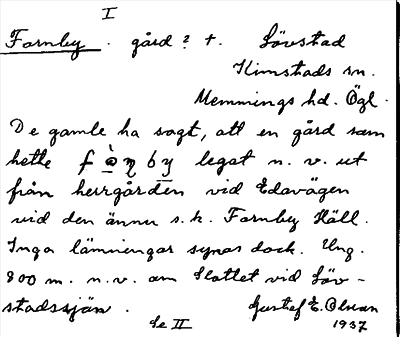 I
Farnby. gård? †. Lövstad
Kimstads sn.
Memmings hd. Ögl.
De gamle ha sagt, att en gård som
hette fàn̥by legat n. v. ut
från herrgården vid Edavägen
vid den ännu s. k. Farnby Häll.
Inga lämningar synas dock. Ung.
800 m. n. v. om Slottet vid Löv-
stadssjön.
Gustef E. Olsson
Se II 1937